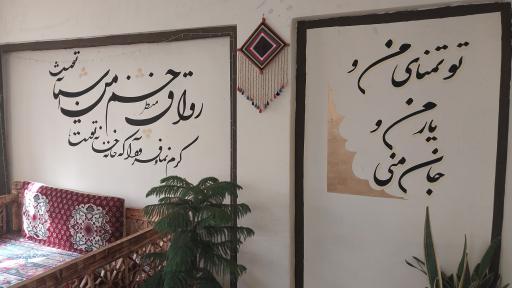 رواق منظر چشم من آشیانه تست
کرم نما و فرود آ که خانه خانه تست
تو تمنای من و
یار من و
جان منی